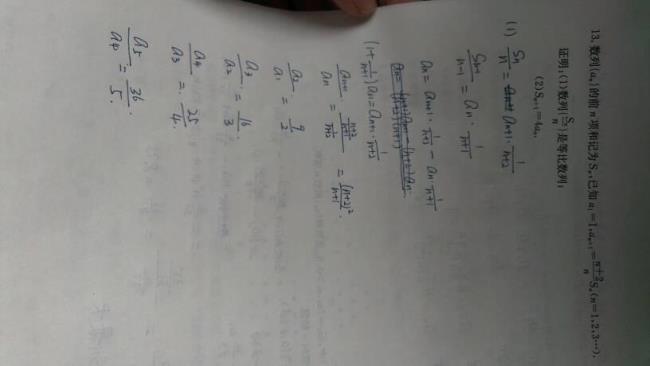 13. 数列{aₙ}的前 n 项和记为 Sₙ,已知 a₁=1,aₙ₊₁=\frac{n+2}{n}Sₙ(n=1,2,3…).
证明:(1)数列{\frac{Sₙ}{n}}是等比数列;
(2)Sₙ₊₁=4aₙ.
(1) \frac{Sₙ}{n} = aₙ₊₁·\frac{1}{n+2}
\frac{Sₙ₋₁}{n-1} = aₙ·\frac{1}{n+1}
aₙ = aₙ₊₁·\frac{1}{n+2} - aₙ\frac{1}{n+1}
(1+\frac{1}{n+1})aₙ = aₙ₊₁·\frac{1}{n+2}
\frac{aₙ₊₁}{aₙ} = \frac{\frac{n+2}{n+1}}{\frac{1}{n+2}} = \frac{(n+2)²}{n+1}.
\frac{a₂}{a₁} = \frac{9}{2}
\frac{a₃}{a₂} = \frac{16}{3}
\frac{a₄}{a₃} = \frac{25}{4}.
\frac{a₅}{a₄} = \frac{36}{5}.